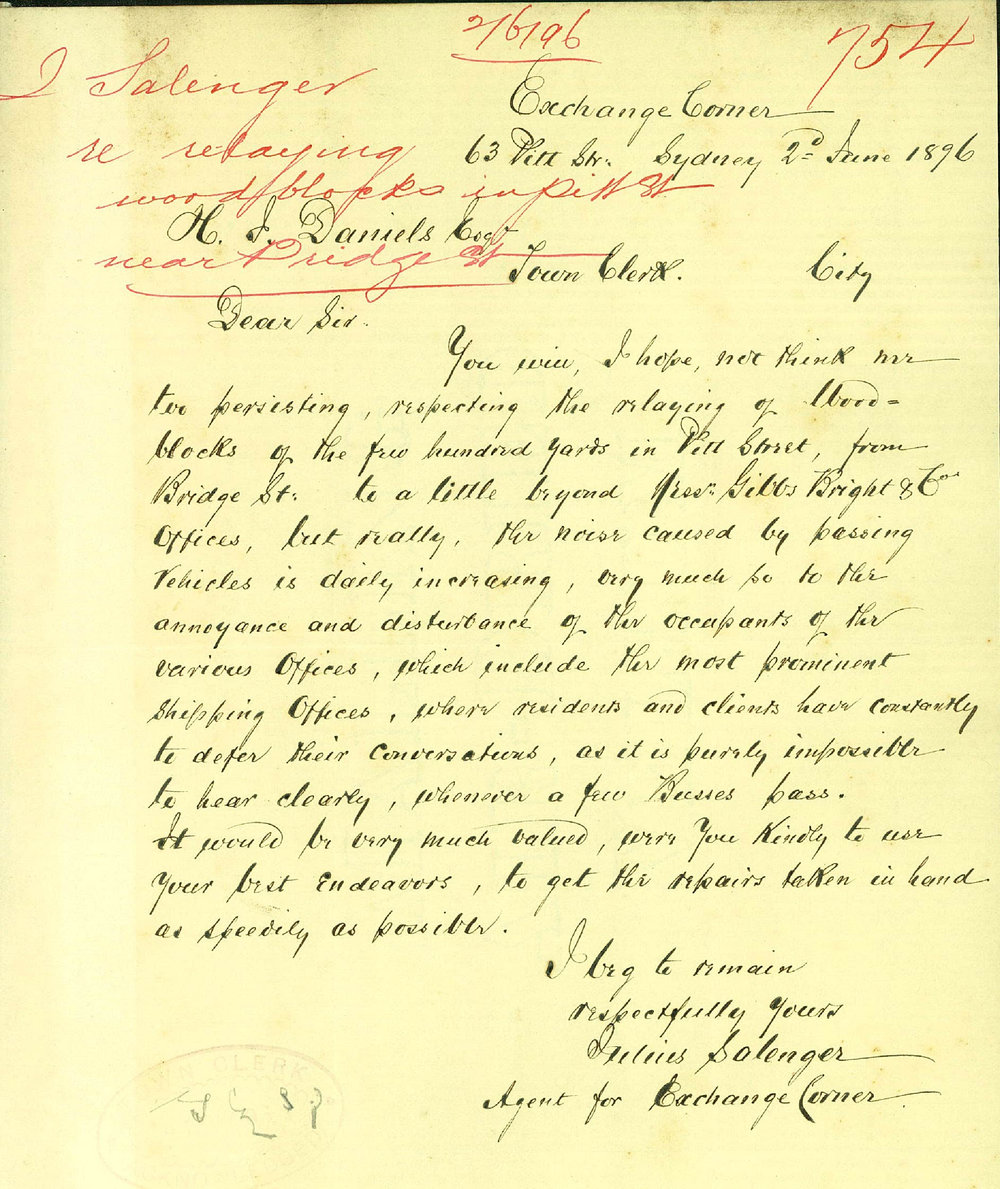 2/6/96
754
J Salenger
re relaying
woodblocks in pitt St
near Bridge St
Exchange Corner
63 Pitt Str. Sydney 2d June 1896
H. J. Daniels Esqr
Town Clerk. City
Dear Sir.
You will, I hope, not think me
too persisting, respecting the relaying of Wood=
blocks of the few hundred yards in Pitt Street, from
Bridge St: to a little beyond Messrs. Gibbs Bright & Cos
Offices, but really, the noise caused by passing
Vehicles is daily increasing, very much so to the
annoyance and disturbance of the occupants of the
various Offices, which include the most prominent
Shipping Offices, where residents and clients have constantly
to defer their conversations, as it is purely impossible
to hear clearly, whenever a few Busses pass.
It would be very much valued, were You Kindly to use
Your best Endeavors, to get the repairs taken in hand
as speedily as possible.
I beg to remain
respectfully Yours
Julius Salenger
Agent for Exchange Corner
TOWN CLERK